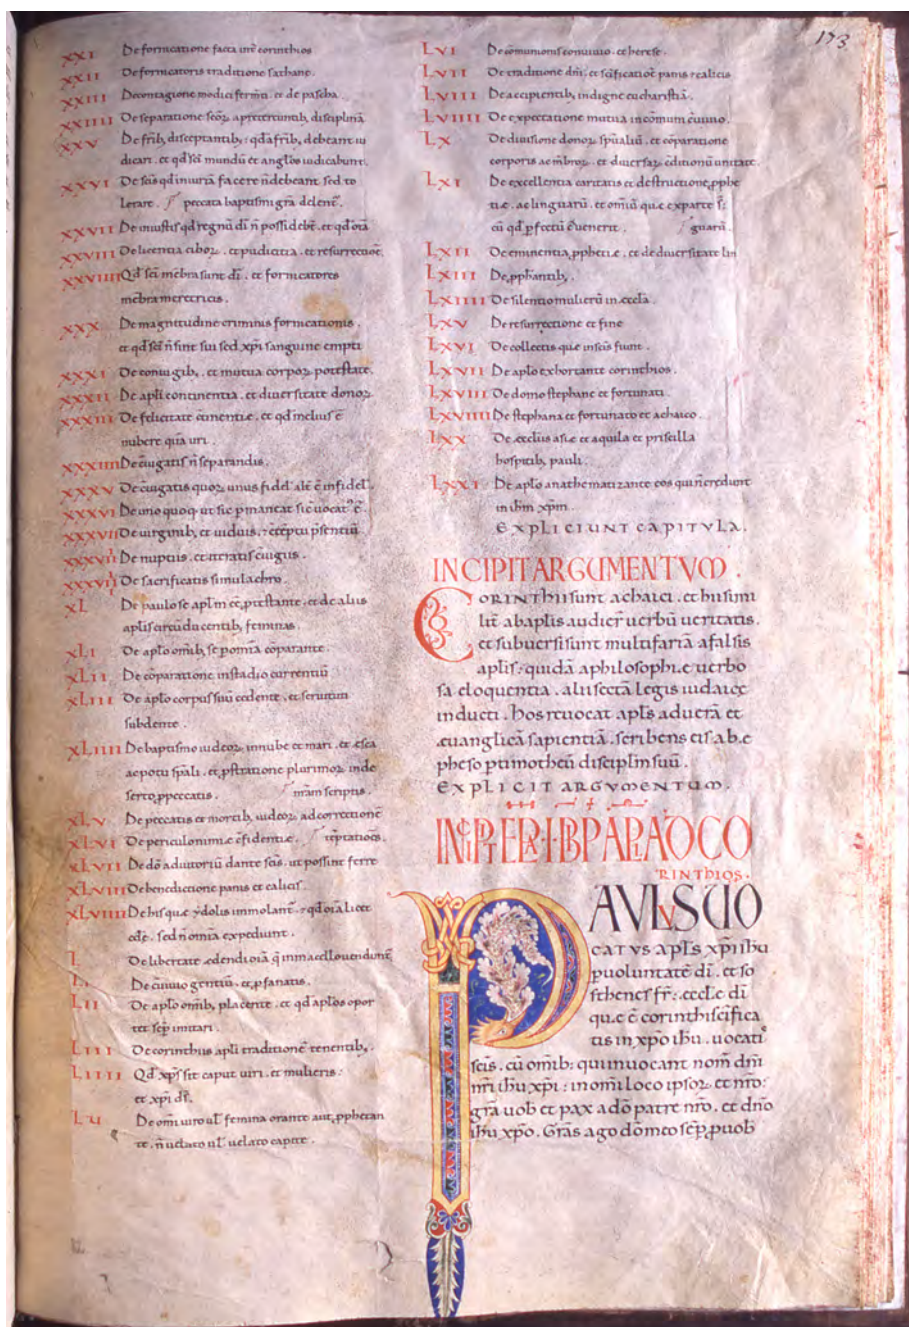 173
XXI De fornicatione facta int̄ corinthios
XXII De fornicatoris traditione sathane.
XXIII De contagione modici ferm̄ti et de pascha.
XXIIII De separatione sc̄oꝝ a preteruntib; disciplinā
XXV De frīb; disceptantib; ⁊ qd a frīb; debeant iu
dicari. et qd sc̄i mundū et angl̄os iudicabunt.
XXVI De sc̄is qd iniuriā facere n̄ debeant sed to
lerare. peccata baptismi grā delent̄.
XXVII De iniustis qd regnū dī n̄ possidebt̄. et qd om̄ā
XXVIII De licentia ciboꝝ. et pudicitia. et resurrectiōe.
XXVIIII Qd sc̄i mēbra sunt dī. et fornicatores
mēbra meretricis.
XXX De magnitudine criminis fornicationis.
et qd sc̄i n̄ sint sui sed xp̄i sanguine empti
XXXI De coniugib;. et mutua corpoꝝ potestate.
XXXII De apl̄i continentia. et diuersitate donoꝝ
XXXIII De felicitate c̄tinentiæ. et qd melius ē
nubere quā uri.
XXXIIII De c̄iugatis n̄ separandis.
XXXV De c̄iugatis quoꝝ unus fidel̄ alt̄ ē infidel̄.
XXXVI De uno quoq; ut sic p̄maneat sic uocat᷒ ē.
XXXVII De uirginib; et uiduis. ⁊ c̄tēptu p̄sentiū.
XXXVIII De nuptiis. et iteratis c̄iugiis.
XXXVIIII De sacrificatis simulachro.
XL De paulo se apl̄m ēē. p̄testante. et de aliis
aplīs circūducentib; feminas.
XLI De apl̄o om̄ib; se p om̄ia cōparante.
XLII De cōparatione in stadio currentiū
XLIII De apl̄o corpus suū cedente. et seruituti
subdente.
XLIIII De baptismo iudeoꝝ. in nube et mari. et esca
ac potu spāli. et p̄stratione plurimoꝝ in de
serto, p peccatis. nr̄am scriptis.
XLV De peccatis et mortib; iudeoꝝ ad correctionē
XLVI De periculo nimiæ c̄fidentiæ. tēptatiōes.
XLVII De dō adiutoriū dante sc̄is. ut possint ferre
XLVIII De benedictione panis et calicis.
XLVIIII De his quæ ydolis immolant̄. ⁊ qd om̄ia licet
edē. sed n̄ omnia expediunt.
L De libertate edendi om̄ia q̄ in macello uendunt̄
LI De c̄uiuio gentiū. et, pfanatis.
LII De apl̄o om̄ib; placente. et qd apl̄os opor
tet sēp̄ imitari.
LIII De corinthiis apl̄i traditionē tenentib;.
LIIII Qd xp̄s sit caput uiri. et mulieris:
et xp̄i ds̄.
LV De om̄i uiro ul̄ femina orante aut, pphetan
te. n̄ uelato ul̄ uelato capite.
LVI De cōmunionis conuiuio. et herese.
LVII De traditione dn̄i. et sc̄ificatiōe panis et calicis
LVIII De accipientib; indigne eucharistiā.
LVIIII De expectatione mutua in cōmuni c̄uiuio.
LX De diuisione donoꝝ spūaliū. et cōparatione
corporis ac mēbroꝝ. et diuersaꝝ c̄ditionū unitate.
LXI De excellentia caritatis et destructione, pphe
tiæ. ac linguarū. et om̄iū quæ ex parte sī
cū qd p̄fectū ē uenerit. guarū.
LXII De eminentia, pphetiæ. et de diuersitate lin
LXIII De, pphantib;.
LXIIII De silentio mulierū in æccl̄a.
LXV De resurrectione et fine
LXVI De collectis quæ in sc̄is fiunt.
LXVII De apl̄o exhortante corinthios.
LXVIII De domo stephane et fortunati.
LXVIIII De stephana et fortunato et achaico.
LXX De æccl̄iis asiæ et aquila et priscilla
hospitib; pauli.
LXXI De apl̄o anathematizante eos qui n̄ credunt
in ih̄m xp̄m.
EXPLICIUNT CAPITVLA.
INCIPIT ARGUMENTVM.
CORINTHII sunt achaici. et hi simi
lit̄ ab aplīs audier̄ uerbū ueritatis.
et subuersi sunt multifariā a falsis
aplīs: quidā a philosophiæ uerbo
sa eloquentia. alii secta legis iudaicę
inducti. Hos reuocat apl̄s ad uerā et
euanglicā sapientiā. scribens eis ab e
pheso p timotheū disciplm̄ suū.
EXPLICIT ARGVMENTUM.
INCIPIT EPLA·I·BI PAVLI AD CO
RINTHIOS.
PAVLVS UO
CATVS apl̄s xp̄i ih̄u
p uoluntatē dī. et so
sthenes fr̄: eccl̄e dī
quæ ē corinthi sc̄ifica
tis in xp̄o ih̄u. uocatis
sc̄is. cū om̄ib: qui inuocant nom̄ dn̄i
nr̄i ih̄u xp̄i: in om̄i loco ipsoꝝ et nr̄o:
grā uob̄ et pax a dō patre nr̄o. et dn̄o
ih̄u xp̄o. Grās ago dō meo sēp̄, p uob̄